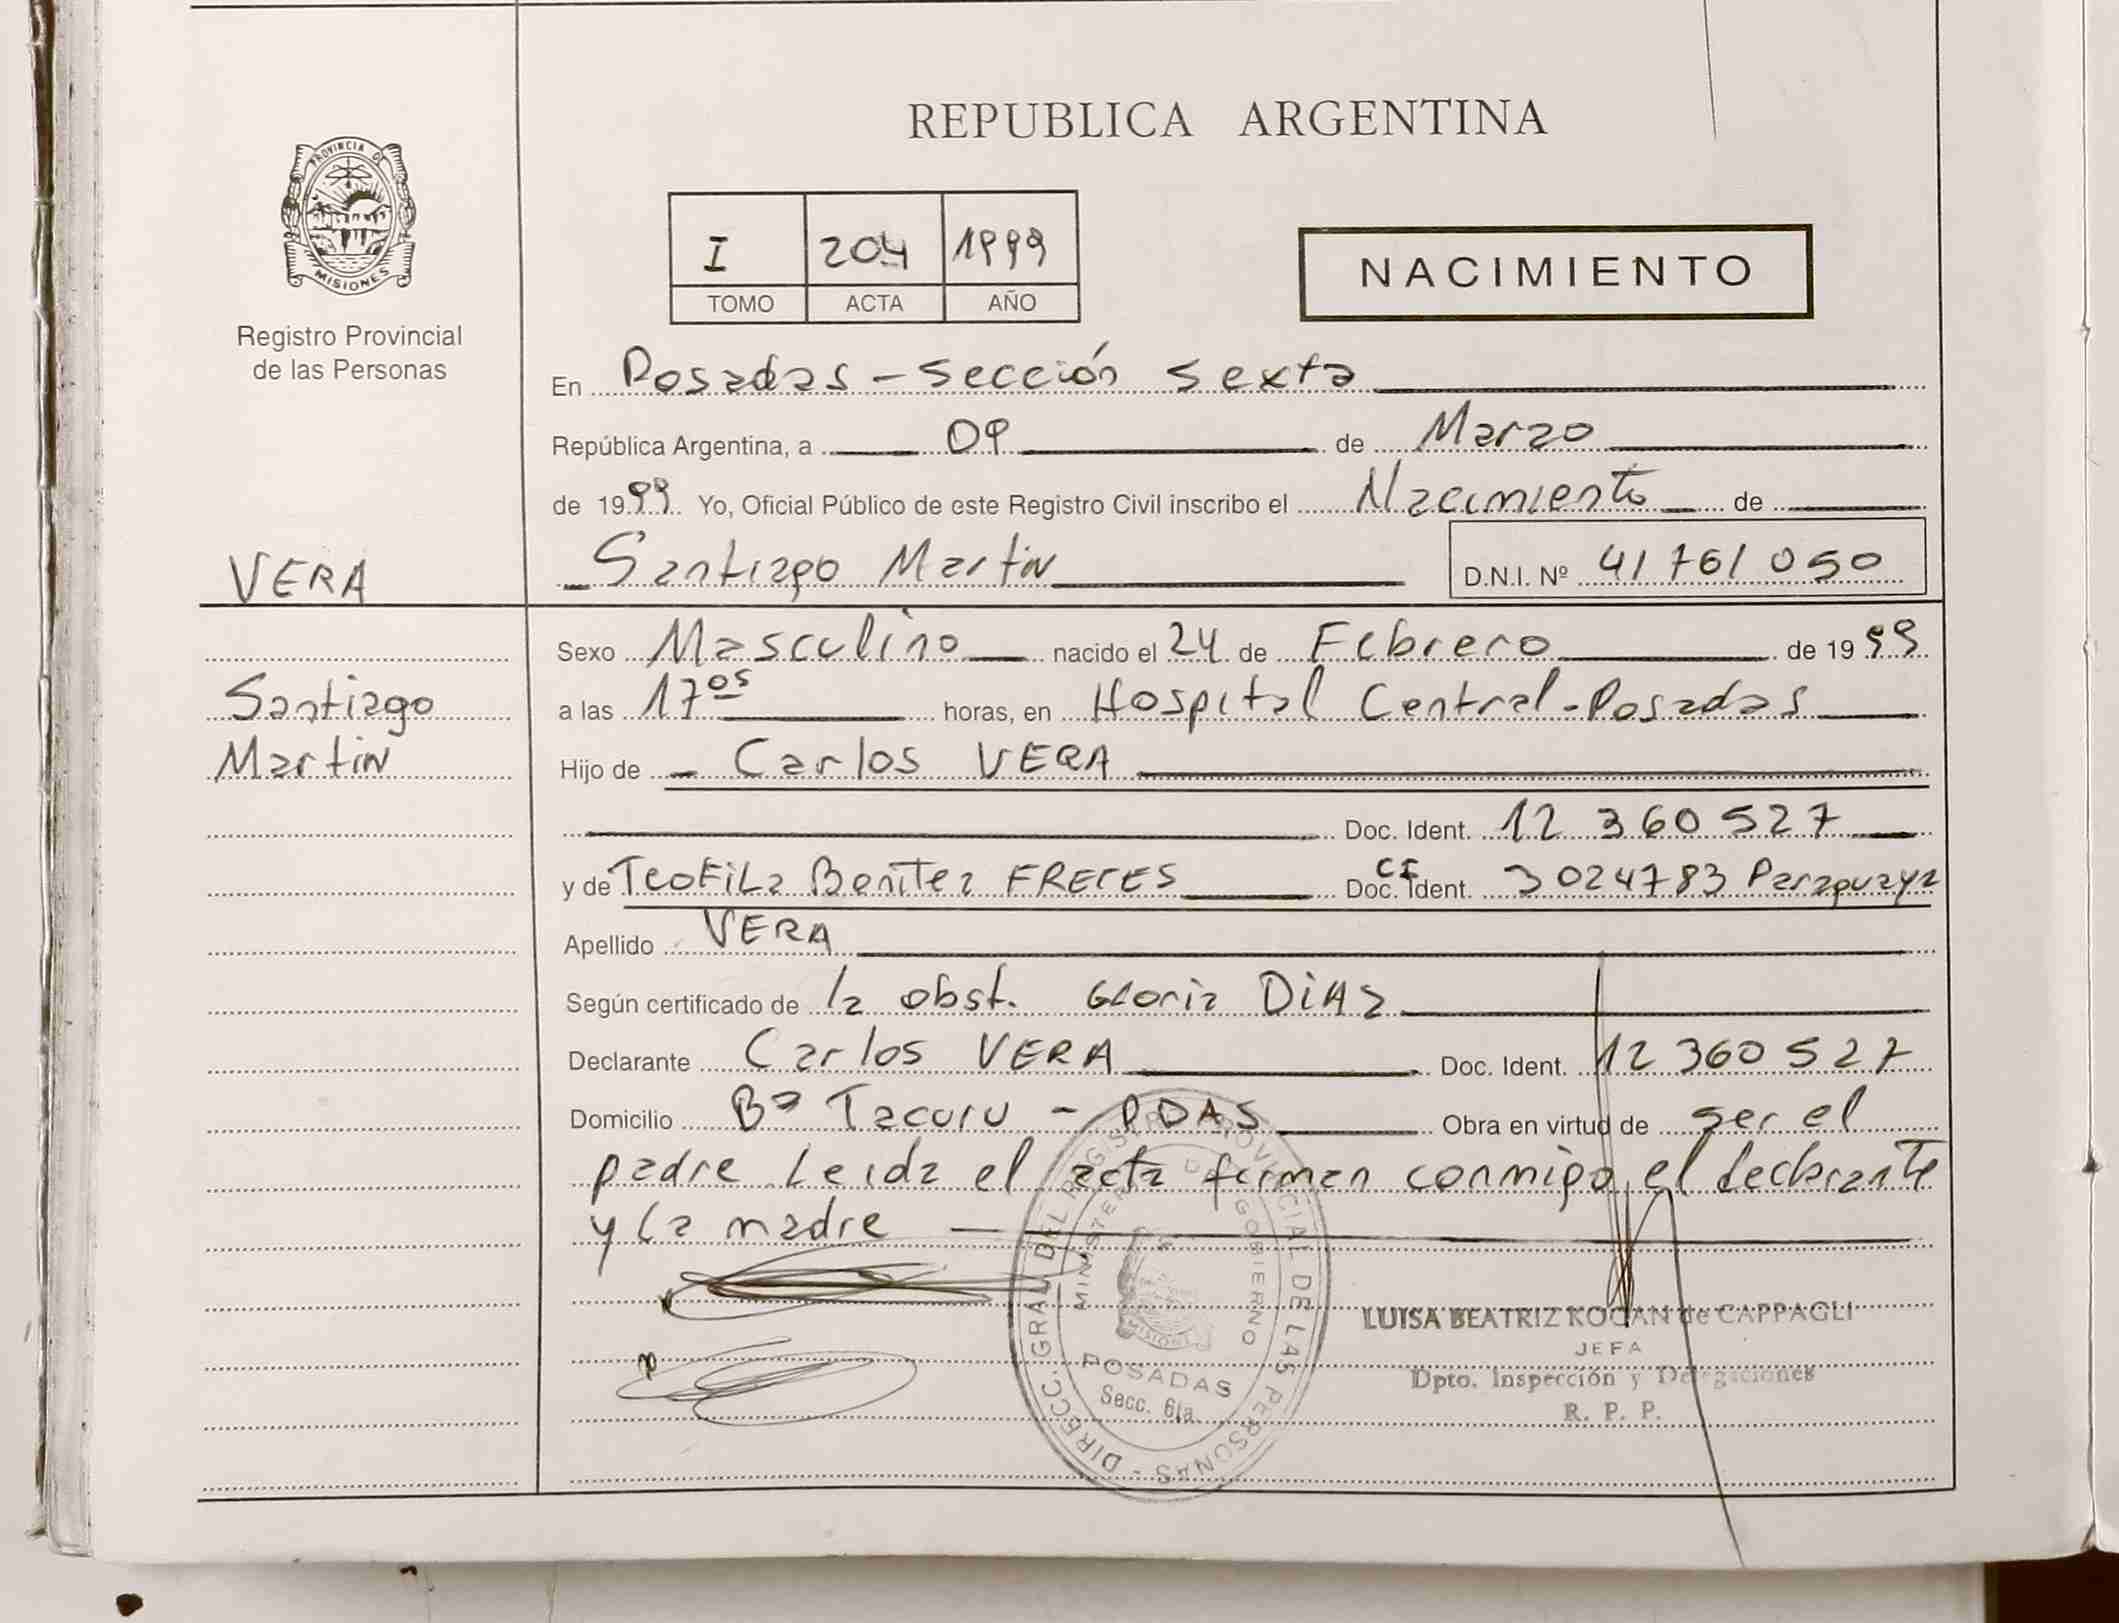 REPUBLICA ARGENTINA
PROVINCIA DE
MISIONES
Registro Provincial
de las Personas
I 204 1999
TOMO ACTA AÑO
NACIMIENTO
En Posadas - Sección Sexta
República Argentina, a 09 de Marzo
de 1999 Yo, Oficial Público de este Registro Civil inscribo el Nacimiento de
VERA
Santiago Martin D.N.I. Nº 41 761 050
Sexo Masculino nacido el 24 de Febrero de 1999
Santiago
a las 17 05 horas, en Hospital Central - Posadas
Martin
Hijo de Carlos VERA
Doc. Ident. 12 360 527
y de Teofila Benitez FRETES Doc. Ident. CI 3024783 Paraguaya
Apellido VERA
Según certificado de la obst. Gloria DIAZ
Declarante Carlos VERA Doc. Ident. 12 360 527
Domicilio Bº Tacuru - PDAS Obra en virtud de ser el
padre Leida el acta firman conmigo el declarante
y la madre
DIRECC. GRAL. DEL REGISTRO PROVINCIAL DE LAS PERSONAS -
MINISTERIO DE GOBIERNO
MISIONES
POSADAS
Secc. 6ta
LUISA BEATRIZ KOGAN de CAPPAGLI
JEFA
Dpto. Inspección y Delegaciones
R. P. P.